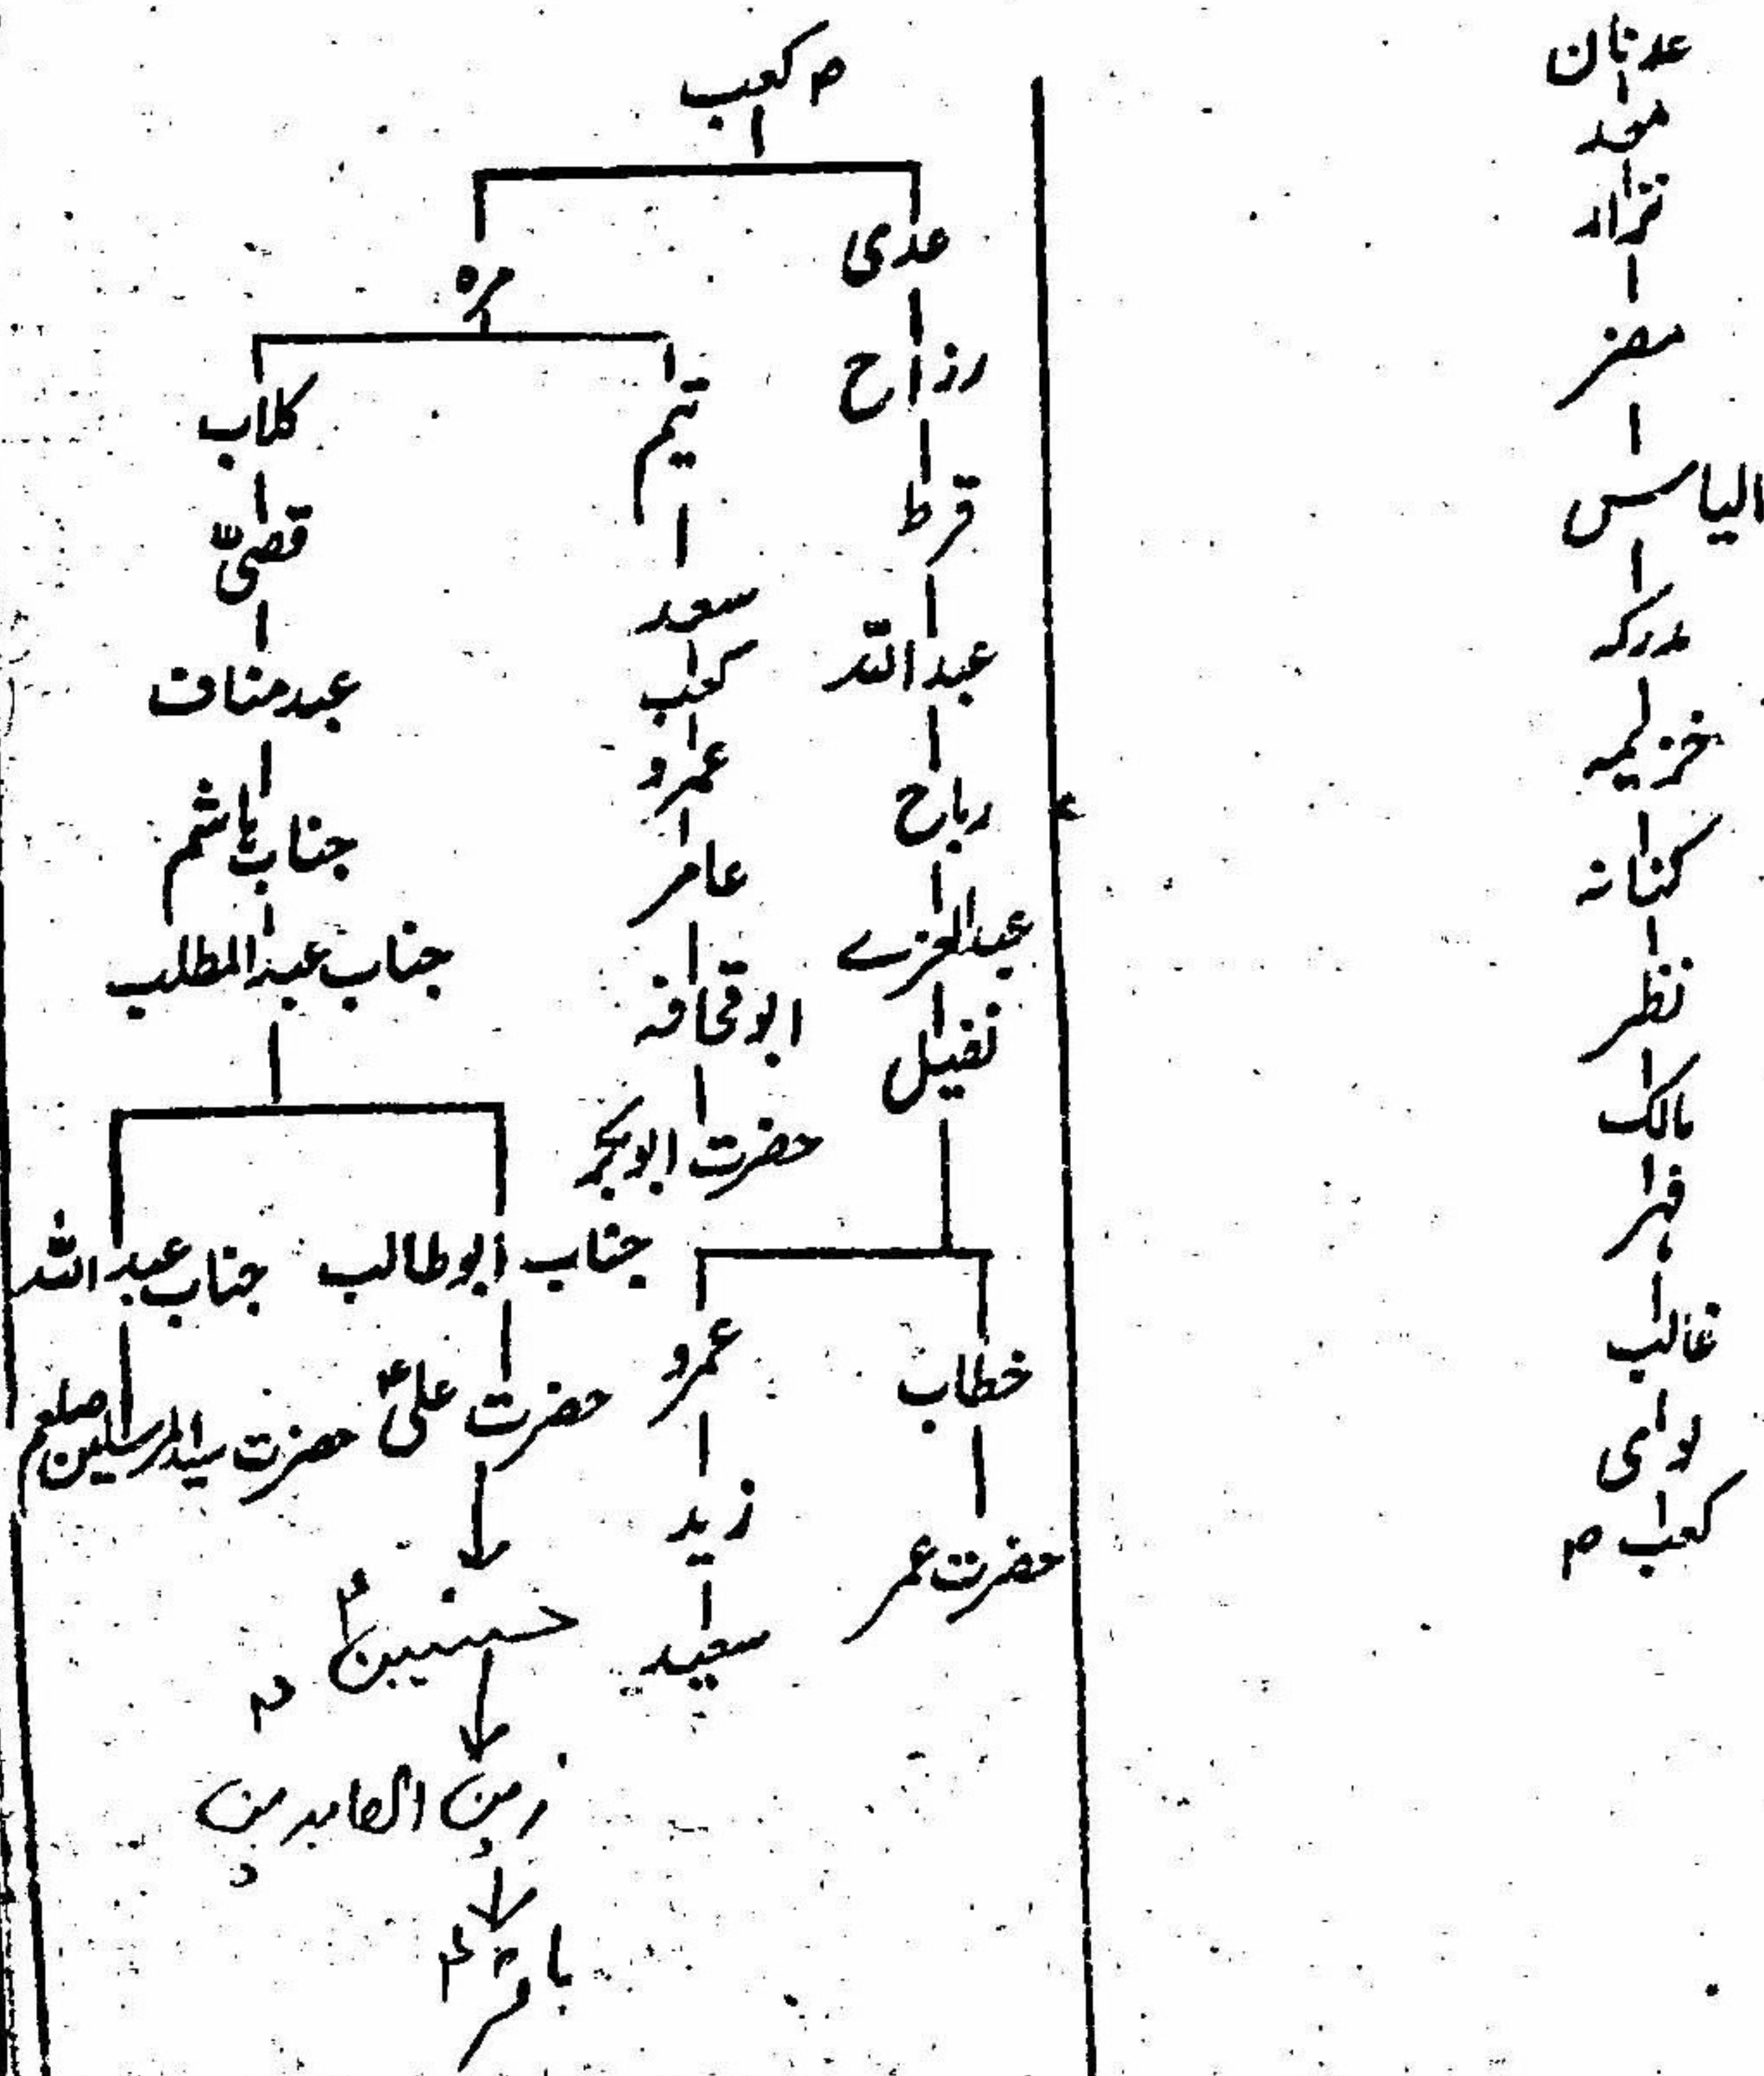 عدنان
معد
نزار
مضر
الیاس
مدرکہ
خزیمہ
کنانہ
نظر
مالک
فہر
غالب
لوای
کعب م
م کعب
عدی
رزاح
قرط
عبداللہ
رباح
عبدالعزے
نفیل
خطاب
حضرت عمر
عمرو
زید
سعید
مرہ
تیم
سعد
کعب
عمرو
عامر
ابوقحافہ
حضرت ابوبکر
کلاب
قصیّ
عبدمناف
جناب ہاشم
جناب عبدالمطلب
جناب ابوطالب
حضرت علیؑ
حسنینؑ
زین العابدین
باقرؑ
جناب عبداللہ
حضرت سیدالمرسلین صلعم